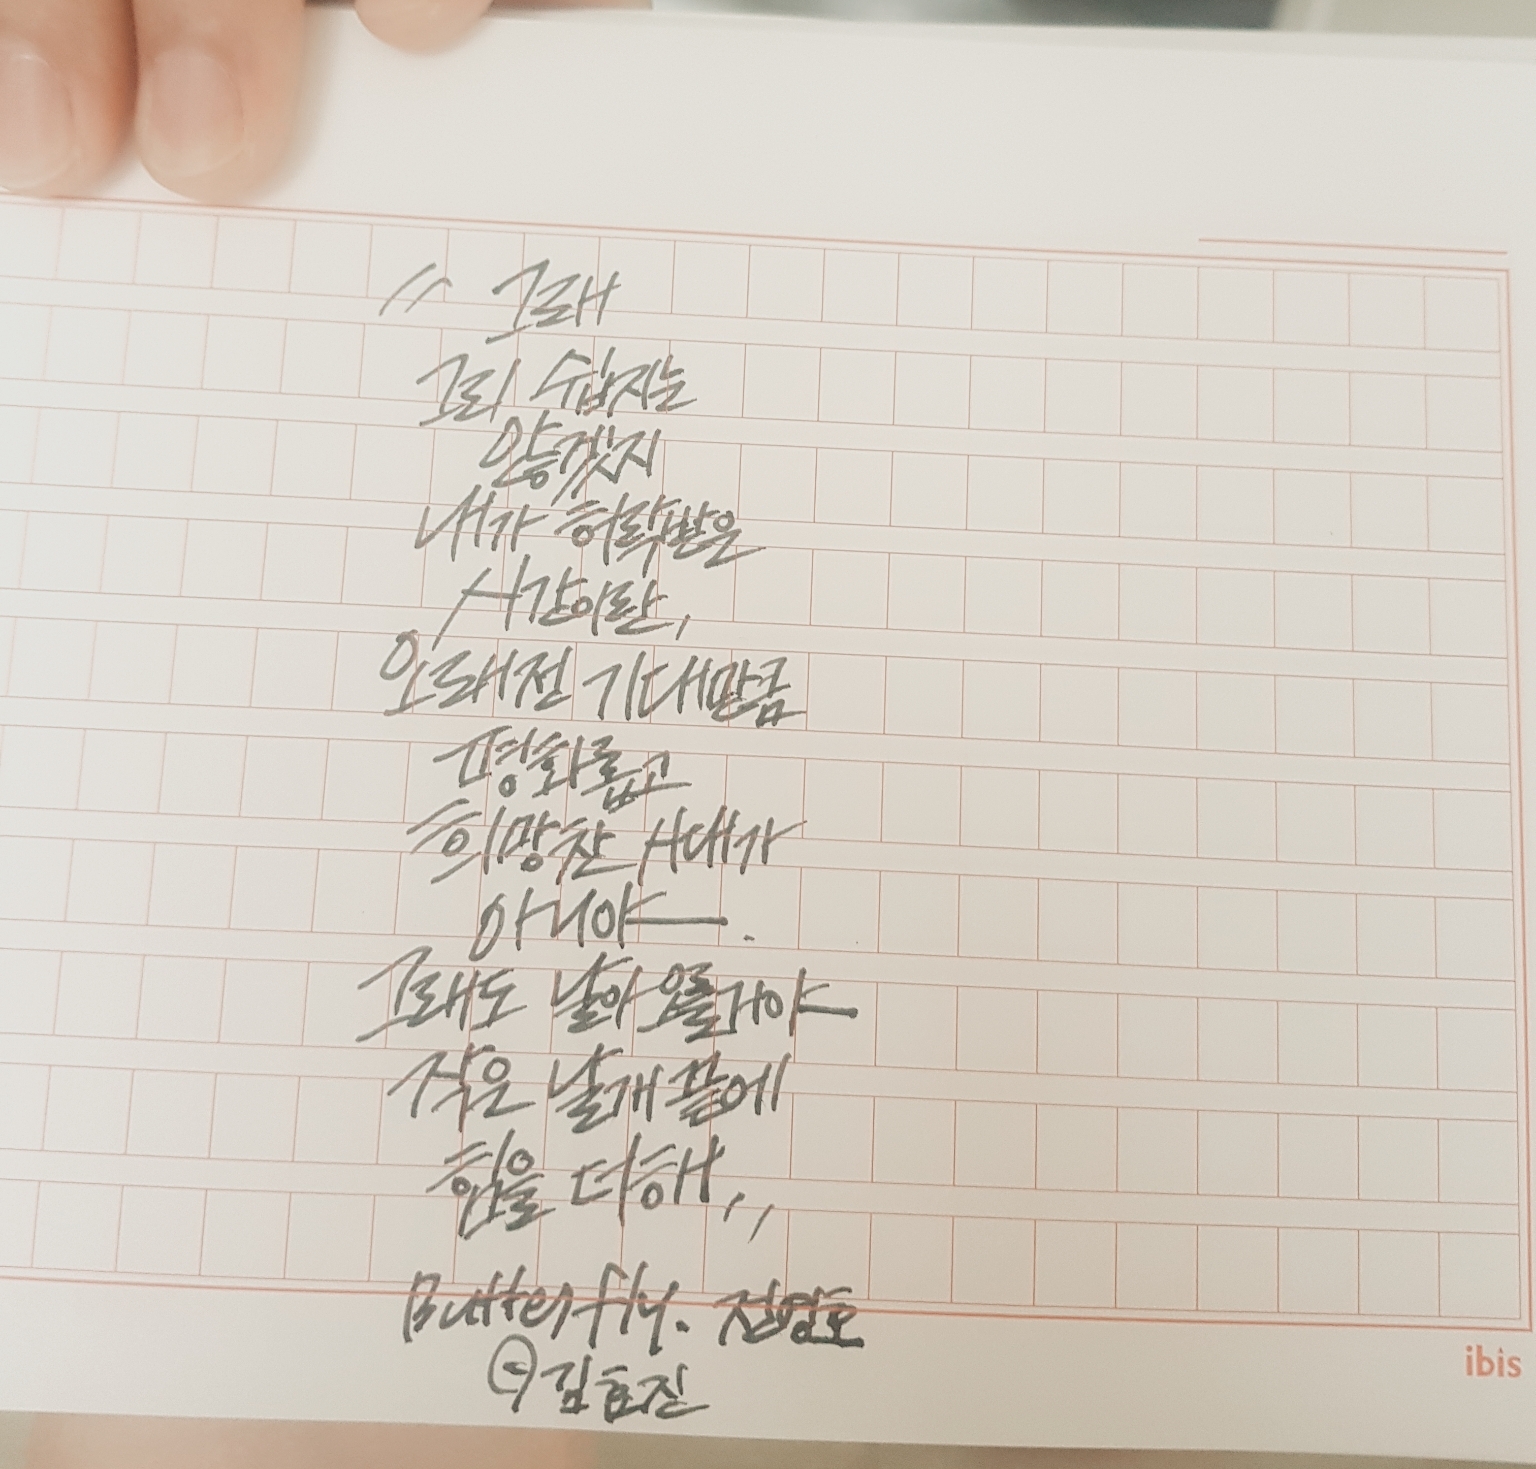 " 그래
그리 쉽지는
않겠지
내가 허락받은
시간이란,
오래전 기대만큼
평화롭고
희망찬 시대가
아니야—.
그래도 날아 오를거야—
작은 날개 끝에
힘을 더해,,
Butterfly. 전영호
김효진
ibis